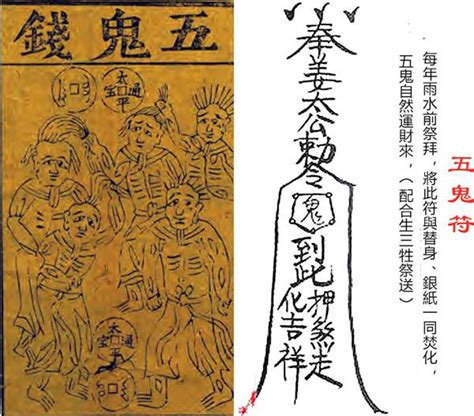 五鬼錢
太平通宝
太平通宝
五鬼符
每年雨水前祭拜，將此符與替身、銀紙一同焚化，
五鬼自然運財來，（配合生三牲祭送）
奉姜太公勅令
鬼
到此
押煞走
化吉祥